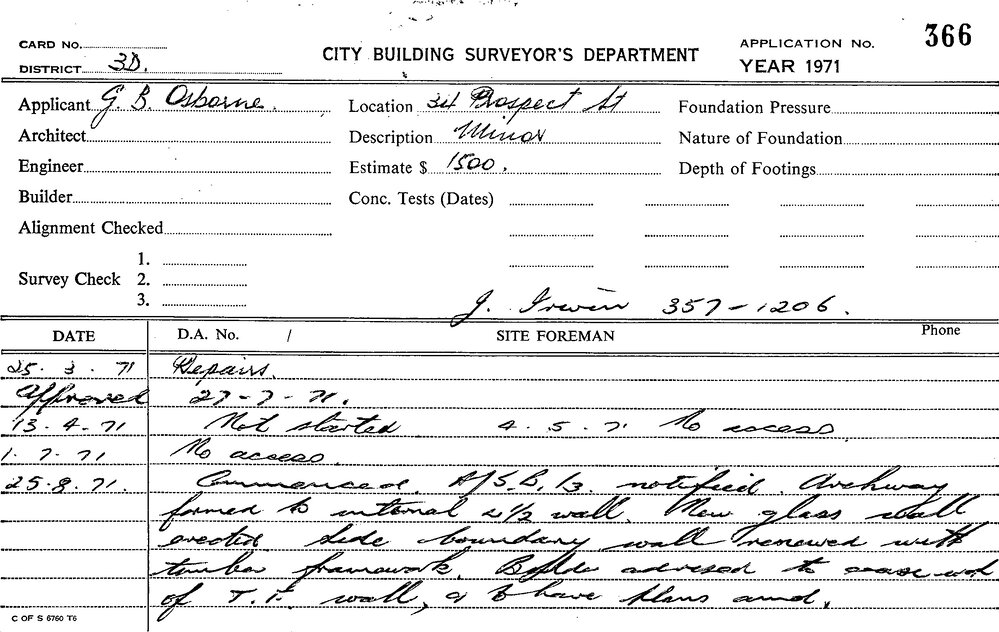 366
CARD No.
CITY BUILDING SURVEYOR'S DEPARTMENT
APPLICATION No.
DISTRICT 3D.
YEAR 1971
Applicant G. B. Osborne.
Location 34 Prospect St
Foundation Pressure
Architect
Description Minor
Nature of Foundation
Engineer
Estimate $ 1500.
Depth of Footings
Builder
Conc. Tests (Dates)
Alignment Checked
Survey Check
1.
2.
3.
J. Irwin 357-1206.
DATE D.A. No. / SITE FOREMAN Phone
25. 3. 71 Repairs.
Approved 27-7-71.
13-4-71 Not started 4. 5. 71 No access
1. 7. 71 No access.
25-8-71. Commenced. notified. Archway
formed to internal 4½ wall. New glass wall
erected side boundary wall renewed with
timber framework. advised to cease work
of T.F. wall, & to have plans amd.
C OF S 6760 T6